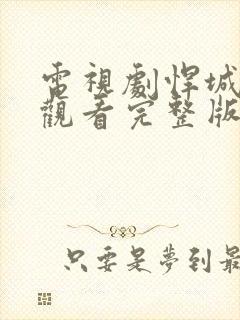 電視劇悍城
觀看完整版
只要是夢到最